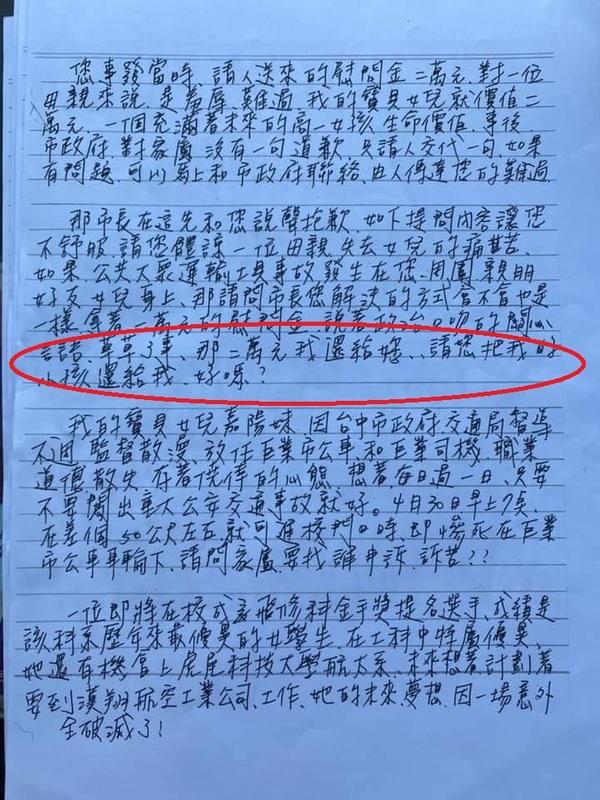 您事發當時、請人送來的慰問金二萬元、對一位
母親來說、是羞辱、難過、我的寶貝女兒就價值二
萬元、一個充滿著未來的高一女孩、生命價值、事後、
市政府、對家屬沒有一句道歉、只請人交代一句、如果
有問題、可以馬上和市政府聯絡、由人傳達您的難過、
那市長在這先和您說聲抱歉、如下提問內容讓您
不舒服、請您體諒一位母親、失去女兒的痛苦、
如果、公共大眾運輸工具事故發生在您、周圍親朋
好友女兒身上、那請問市長您解決的方式會不會也是
一樣、拿著二萬元的慰問金、說著政治口吻的關心
言語、草草了事、那二萬元我還給妳、、請您把我的
小孩還給我、好嗎?
我的寶貝女兒嘉陽妹、因台中市政府交通局督導
不週、監督散漫、放任巨業市公車、和巨業司機、職業
道德散失、存著僥倖的心態、想著每日過一日、只要
不要鬧出重大公安交通事故就好。4月30日早上7點、
在差個50公尺左右、就可進校門口時、即慘死在巨業
市公車車輪下、請問家屬要找誰申訴、訴苦??
一位即將在校成為飛修科金手獎提名選手、成績是
該科系歷年來最優異的女學生、在工科中特屬優異、
她還有機會上虎尾科技大學航太系、未來想著計劃著
要到漢翔航空工業公司、工作、她的未來、夢想、因一場意外
全破滅了!